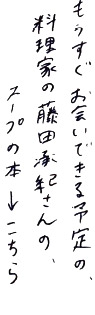 もうすぐお会いできる予定の、
料理家の藤田承紀さんの、
スープの本↓こちら